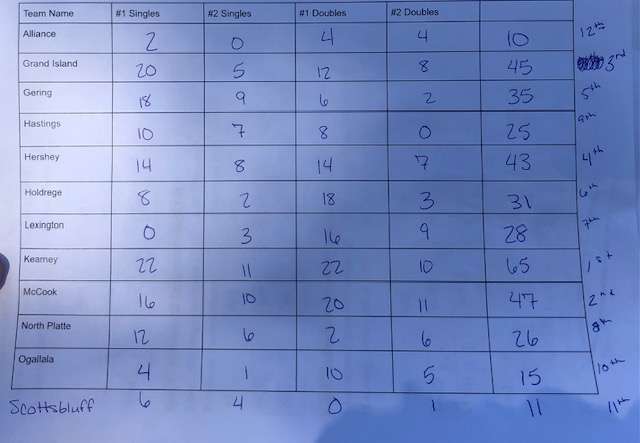 Team Name #1 Singles #2 Singles #1 Doubles #2 Doubles
Alliance 2 0 4 4 10 12th
Grand Island 20 5 12 8 45 3rd
Gering 18 9 6 2 35 5th
Hastings 10 7 8 0 25 9th
Hershey 14 8 14 7 43 4th
Holdrege 8 2 18 3 31 6th
Lexington 0 3 16 9 28 7th
Kearney 22 11 22 10 65 1st
McCook 16 10 20 11 47 2nd
North Platte 12 6 2 6 26 8th
Ogallala 4 1 10 5 15 10th
Scottsbluff 6 4 0 1 11 11th